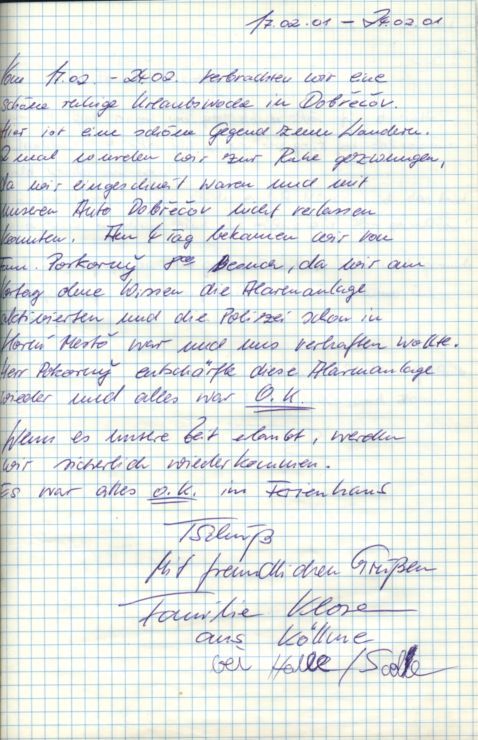 17.02.01 – 24.02.01
Vom 17.02. – 24.02. verbrachten wir eine
schöne ruhige Urlaubswoche in Dobřečov.
Hier ist eine schöne Gegend zum Wandern.
2 mal wurden wir zur Ruhe gezwungen,
da wir eingeschneit waren und mit
unseren Auto Dobřečov nicht verlassen
konnten. Am 4 Tag bekamen wir von
Fam. Porkorný Besuch, da wir am
Vortag ohne Wissen die Alarmanlage
aktivierten und die Polizei schon in
Horní Město war und uns verhaften wollte.
Herr Pokorný entschärfte diese Alarmanlage
wieder und alles war O.K.
Wenn es unsere Zeit erlaubt, werden
wir sicherlich wiederkommen.
Es war alles O.K. im Ferienhaus
Tschüß
Mit freundlichen Grüßen
Familie Klose
aus Köllme
bei Halle/Saale